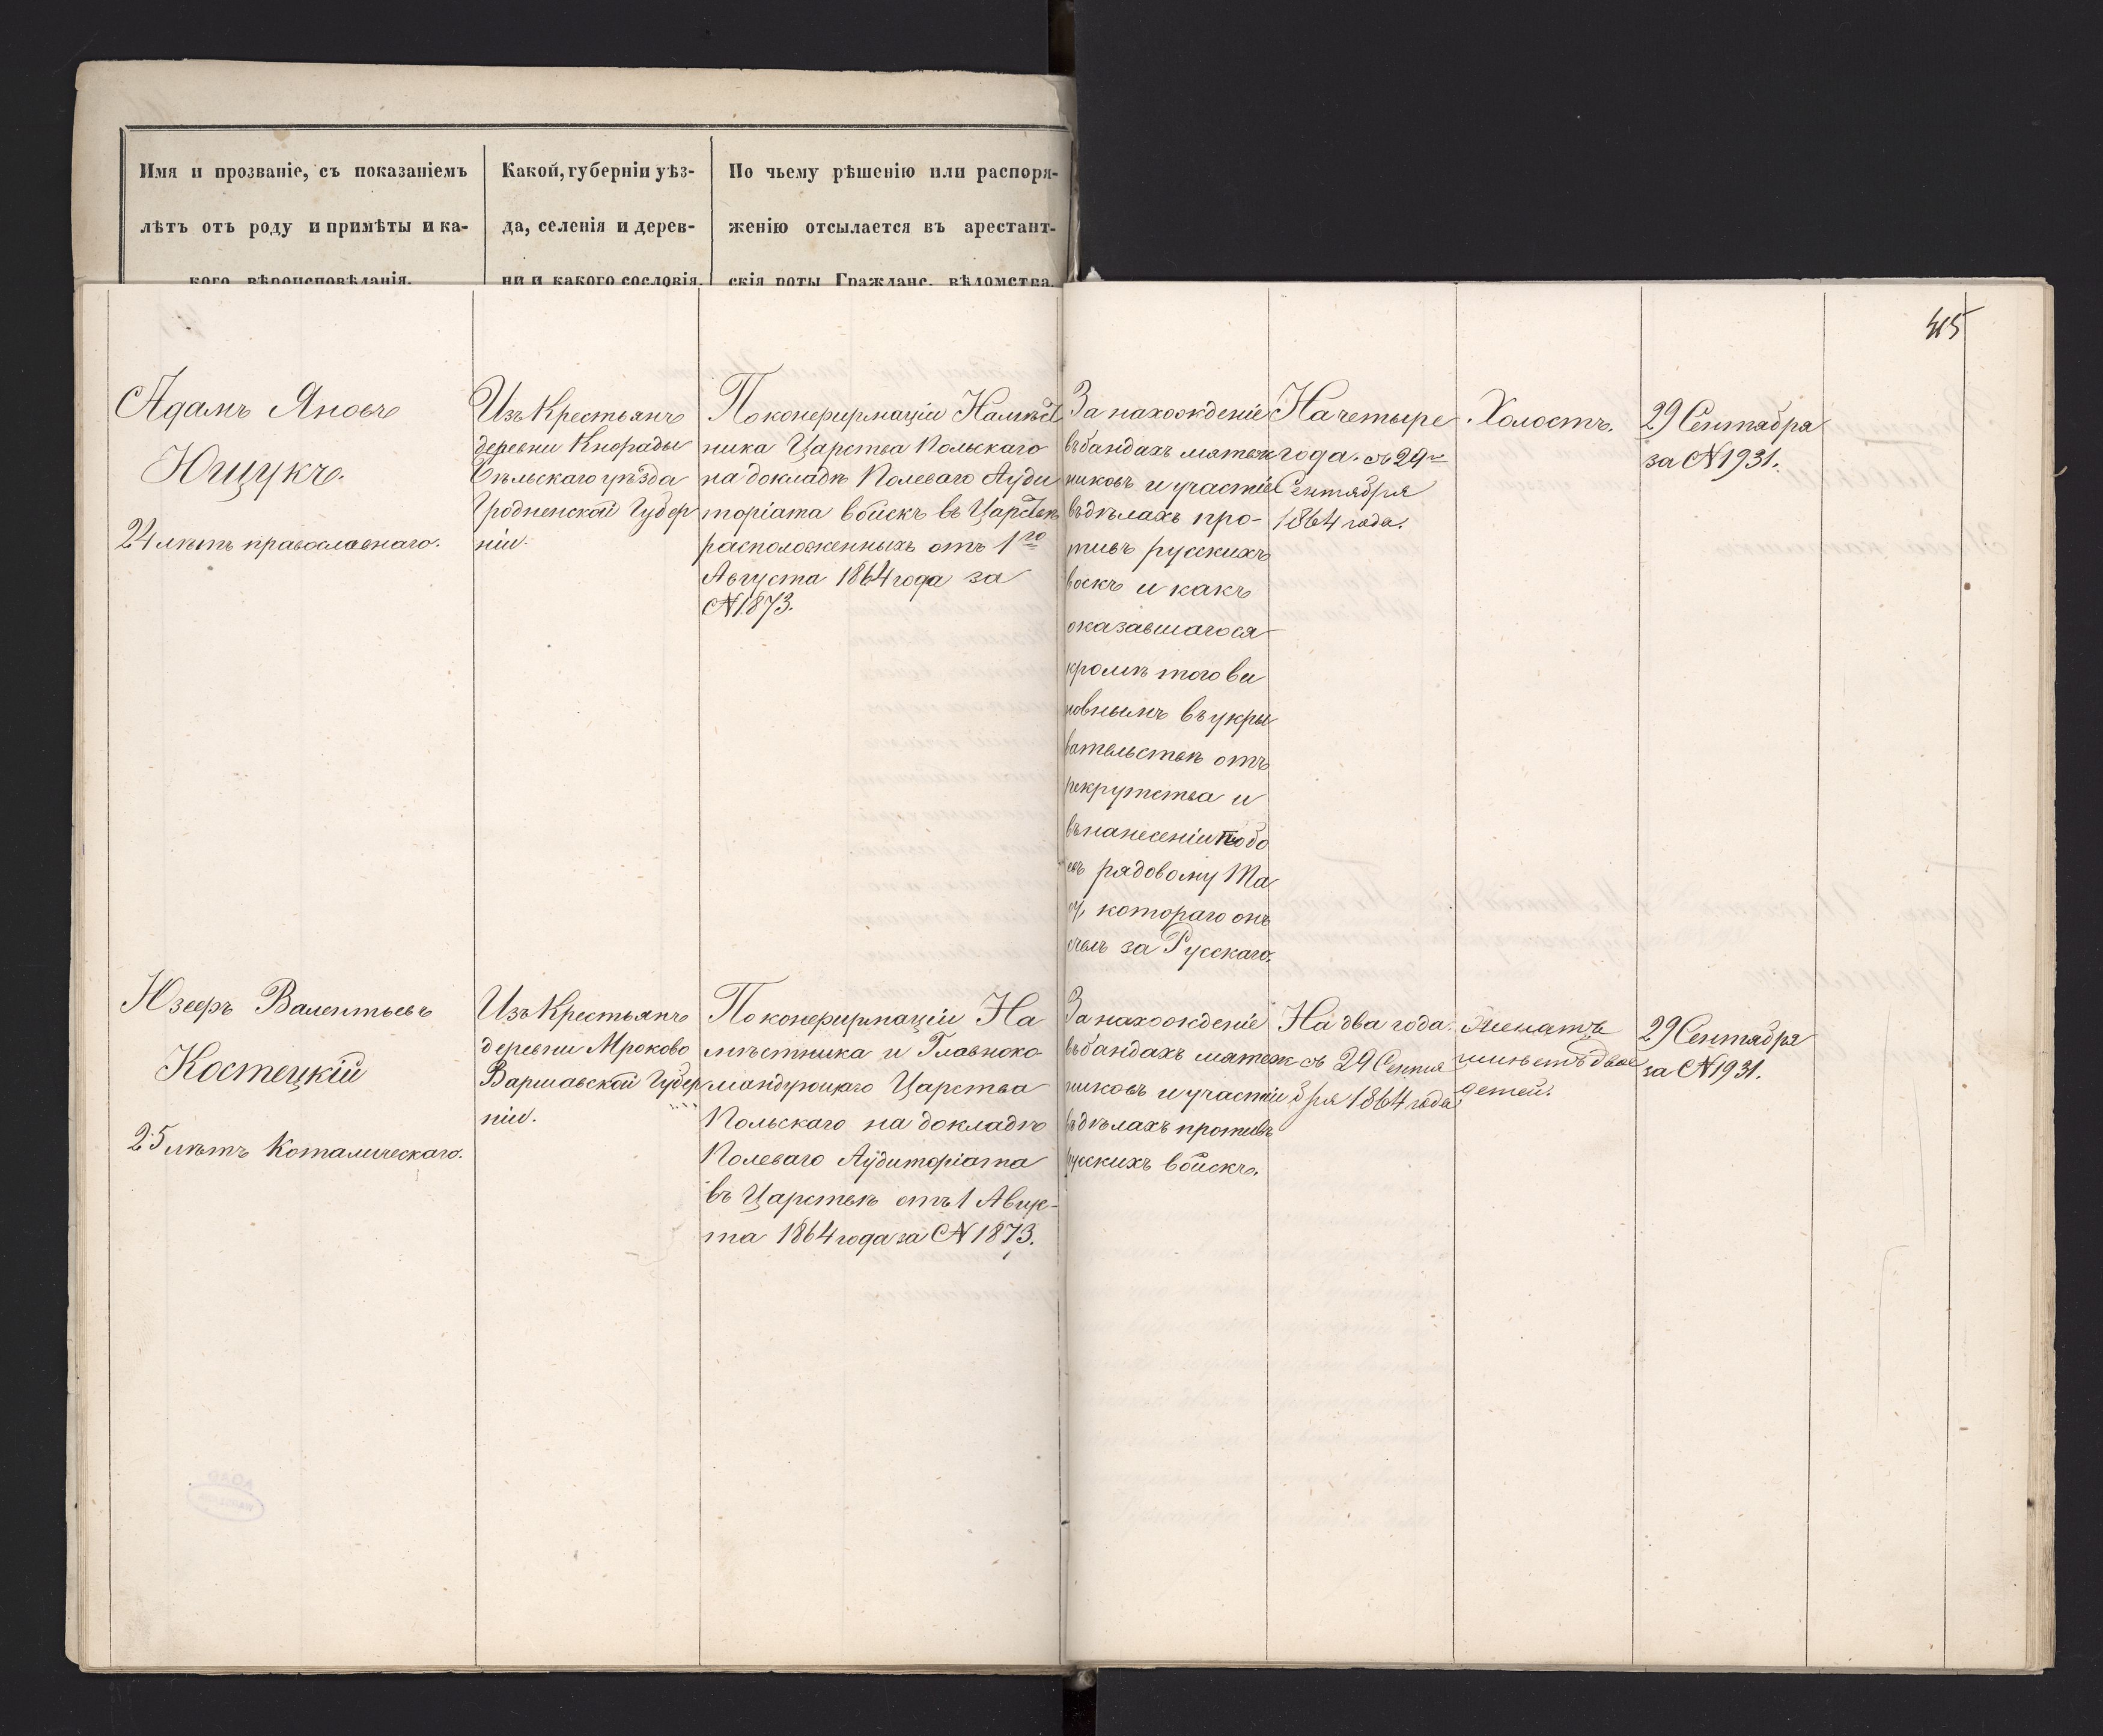 Имя и прозваніе, съ показаніемъ
лѣтъ отъ роду и примѣты и ка-
кого вѣроисповѣданія.
Какой, губерніи уѣз-
да, селенія и дерев-
ни и какого сословія.
По чьему рѣшенію или распоря-
женію отсылается въ арестант-
скія роты Гражданс. вѣдомства.
415
Адамъ Яновъ
Ющукъ.
24 лѣтъ православнаго.
Изъ Крестьянъ
деревни
Бѣльскаго уѣзда
Гродненской Губер
ніи.
По конфирмаціи Намѣст
ника Царства Польскаго
на докладѣ Полеваго Ауди
торіата войскъ въ Царствѣ
расположенныхъ отъ 1го
Августа 1864 года за
№ 1873.
За нахожденіе
въ бандахъ мятеж
никовъ и участіе
въ дѣлахъ про-
тивъ русскихъ
воскъ и какъ
оказавшагося
кромѣ того ви
новнымъ въ укры
вательствѣ отъ
рекрутства и
въ нанесеніи побо
евъ рядовому
котораго онъ
за Русскаго.
На четыре
года. съ 29го
Сентября
1864 года.
Холостъ.
29 Сентября
за № 1931.
Юзефъ Валентьевъ
Костецкій
25 лѣтъ Католическаго.
Изъ Крестьянъ
деревни Мроково
Варшавской Губер
ніи.
По конфирмаціи На
мѣстника и Главноко-
мандующаго Царства
Польскаго на докладѣ
Полеваго Аудиторіата
въ Царствѣ отъ 1 Авгус-
та 1864 года за № 1873.
За нахожденіе
въ бандахъ мятеж
никовъ и участіи
въ дѣлахъ противъ
русскихъ войскъ.
На два года.
съ 29 Сентя
бря 1864 года.
Женатъ
имѣетъ двое
детей.
29 Сентября
за № 1931.